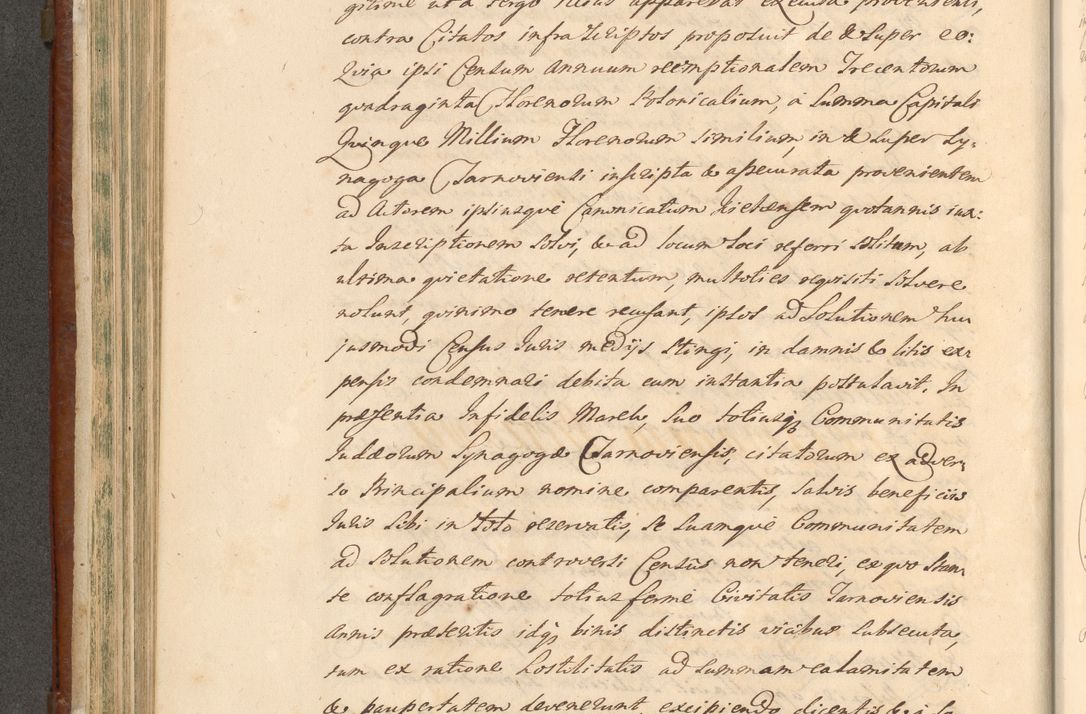 gitime ut a tergo illius apparebat executa provenienti,
contra Citatos infrascriptos proposuit de & super eo:
Quia ipsi Censum annuum reemptionalem Trecentorum
quadraginta Florenorum Polonicalium, à summa Capitali
Quinque Millium Florenorum similium, in & super Sy-
nagoga Tarnoviensi inscripta & assecurata provenientem
ad Actorem ipsiusque Canonicatum Kielcensem quotannis iux:
ta Inscriptionem solvi, & ad locum loci referri solitum, ab
ultima quietatione retentum, multoties requisiti solvere
nolunt, quinimo temere recusant, ipsos ad solutionem hu
jusmodi Census Iuris medijs stingi, in damnis & litis ex-
pensis condemnari debita cum instantia postulavit. In
præsentia Infidelis Marek, suo totiusq Communitatis
Iudæorum Synagogæ Tarnoviensis, citatorum ex adver-
so Principalium nomine comparentis, salvis beneficiis
Iuris sibi in toto reservatis, se suamque Communitatem
ad solutionem controversi Census non teneri, ex quo stan-
te conflagratione totius ferme Civitatis Tarnoviensis
annis præteritis idq binis distinctis vicibus subsecuta,
tum ex ratione hostilitatis ad summam calamitatem
& paupertatem devenerunt, excipiendo dicentis &